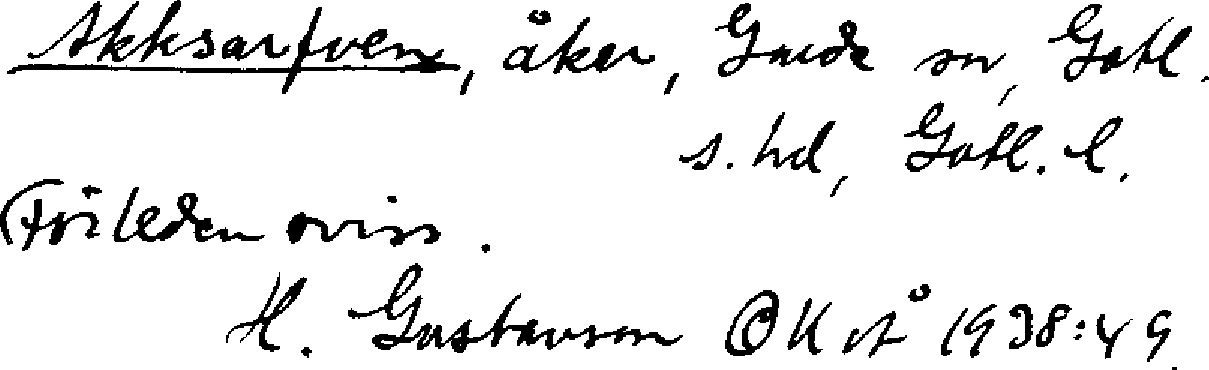 Akksarfven, åker, Garde sn, Gotl.
s. hd, Gotl. l.
Förleden oviss.
H. Gustavson OK å 1938:49.